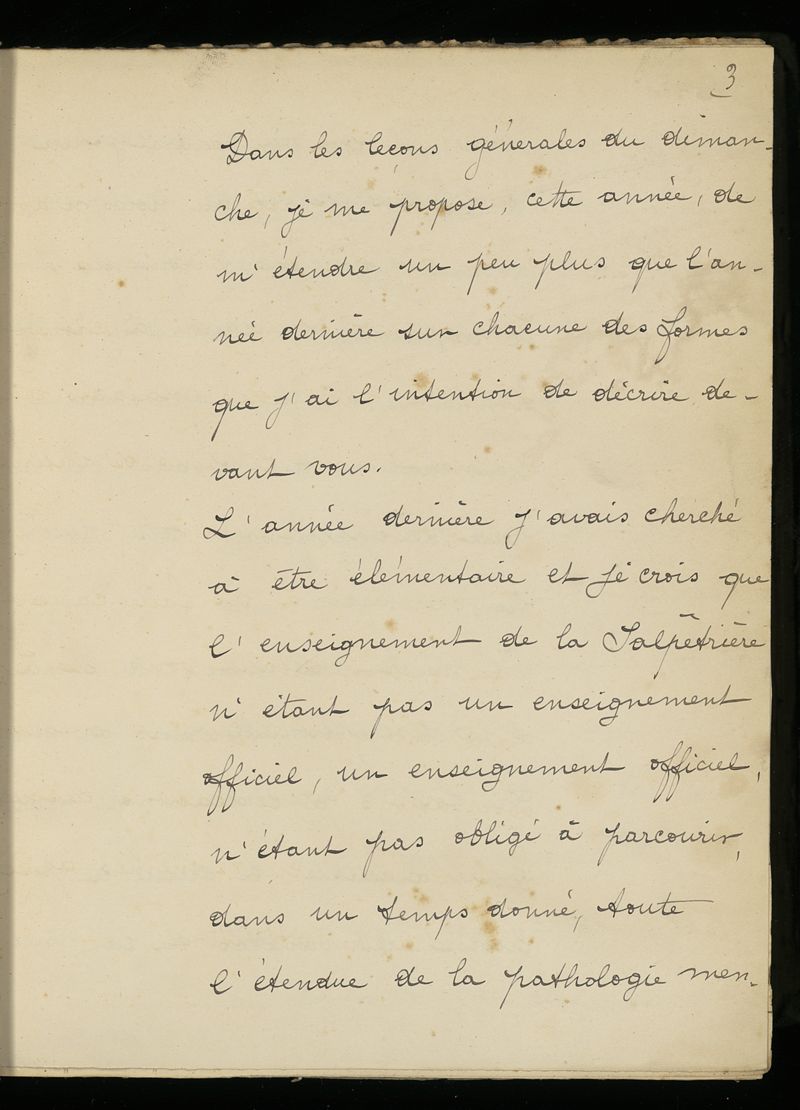 3
Dans les leçons générales du diman-
che, je me propose, cette année, de
m'étendre un peu plus que l'an-
née dernière sur chacune des formes
que j'ai l'intention de décrire de-
vant vous.
L'année dernière j'avais cherché
à être élémentaire et je crois que
l'enseignement de la Salpêtrière
n'étant pas un enseignement
officiel, un enseignement officiel,
n'étant pas obligé à parcourir,
dans un temps donné, toute
l'étendue de la pathologie men-